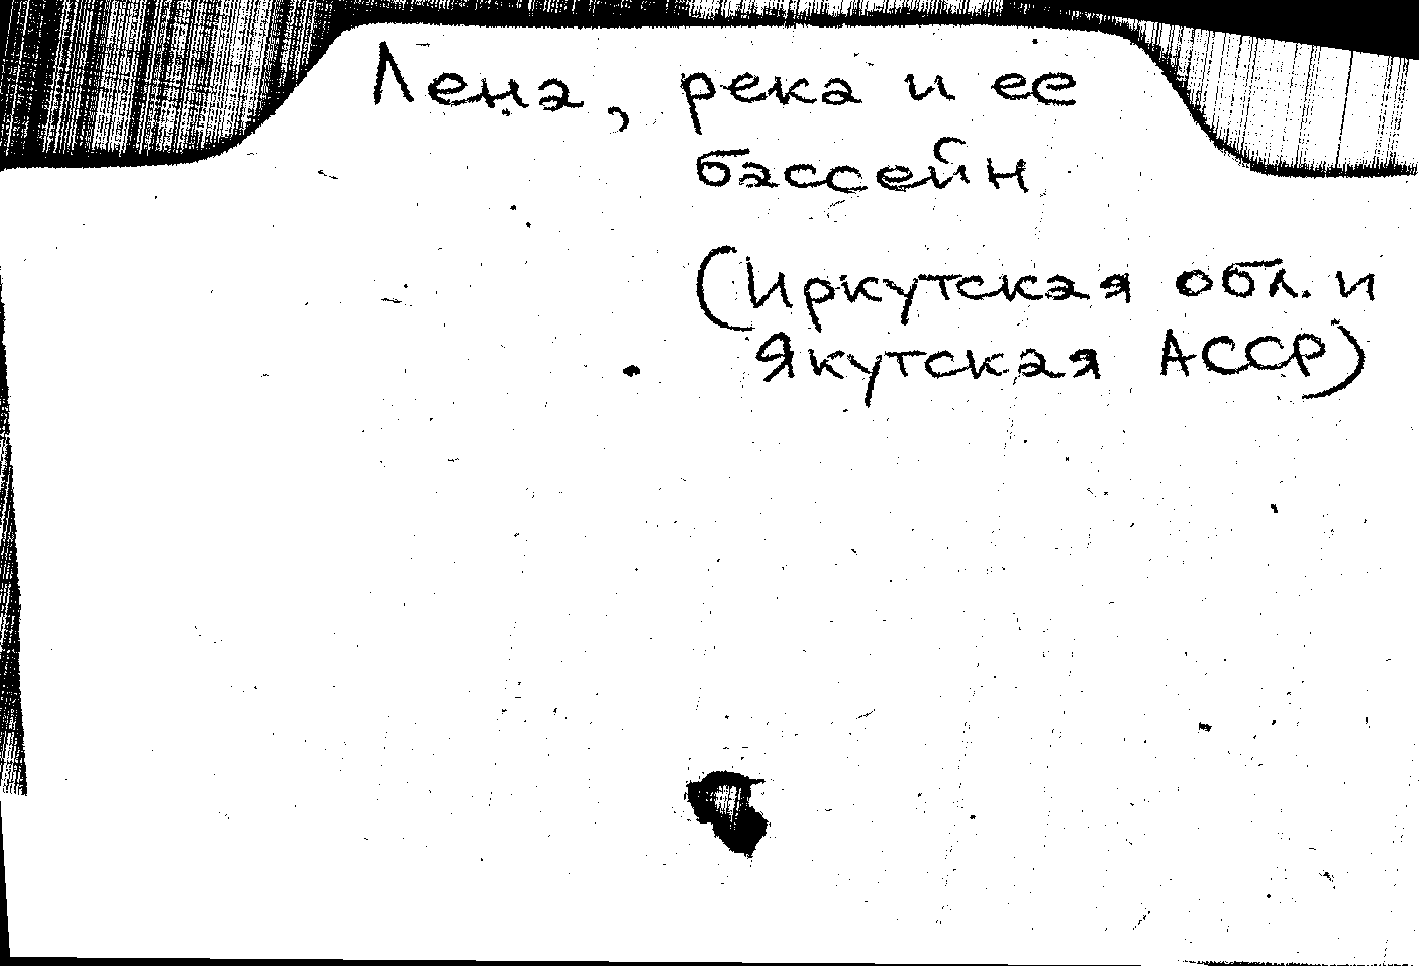 Лена, река и ее
бассейн
(Иркутская обл. и
Якутская АССР)